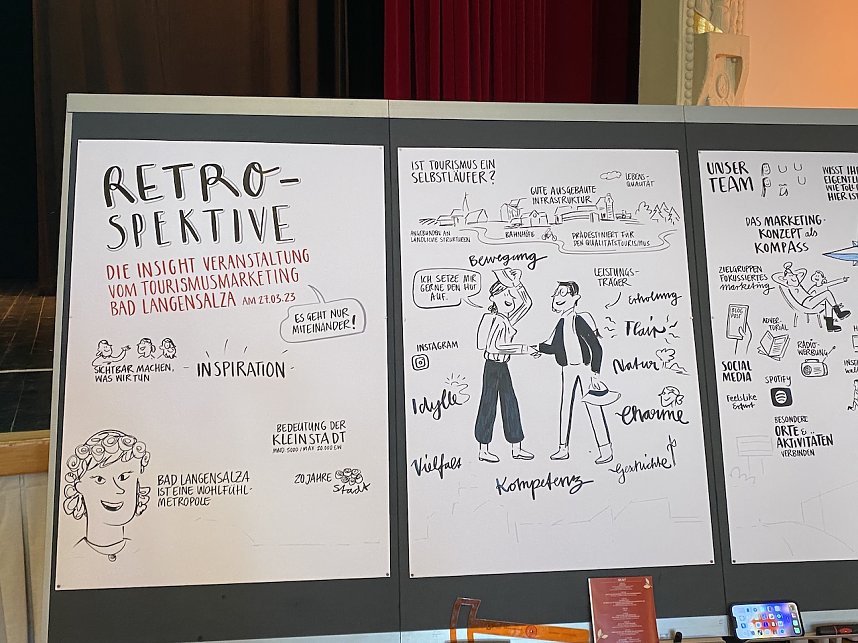 RETRO-
SPEKTIVE
DIE INSIGHT VERANSTALTUNG
VOM TOURISMUSMARKETING
BAD LANGENSALZA AM 27.03.23
ES GEHT NUR
MITEINANDER!
SICHTBAR MACHEN,
WAS WIR TUN
- INSPIRATION -
BEDEUTUNG DER
KLEINSTADT
BAD LANGENSALZA
IST EINE WOHLFÜHL-
METROPOLE
20 JAHRE
Stadt
IST TOURISMUS EIN
SELBSTLÄUFER?
LEBENS-
QUALITÄT
GUTE AUSGEBAUTE
INFRASTRUKTUR
ANGEBUNDEN AN
LÄNDLICHE STRUKTUREN
BAHNHÖFE
PRÄDESTINIERT FÜR
DEN QUALITÄTSTOURISMUS
Bewegung
ICH SETZE MIR
GERNE DEN HUT
AUF.
LEISTUNGS-
TRÄGER
Erholung
Flair
INSTAGRAM
Natur
Idylle
Charme
Vielfalt
Geschichte
Kompetenz
UNSER
TEAM
WISST IHR
EIGENTL
WIE TOLL
HIER IST
DAS MARKETING-
KONZEPT als
KOMPASS
ZIELGRUPPEN
FOKUSSIERTES
Marketing
BLOG
POST
ADVER-
TORIAL
RADIO-
WERBUNG
SOCIAL
MEDIA
SPOTIFY
FeelsLike
Erfurt
BESONDERE
ORTE &
AKTIVITÄTEN
VERBINDEN